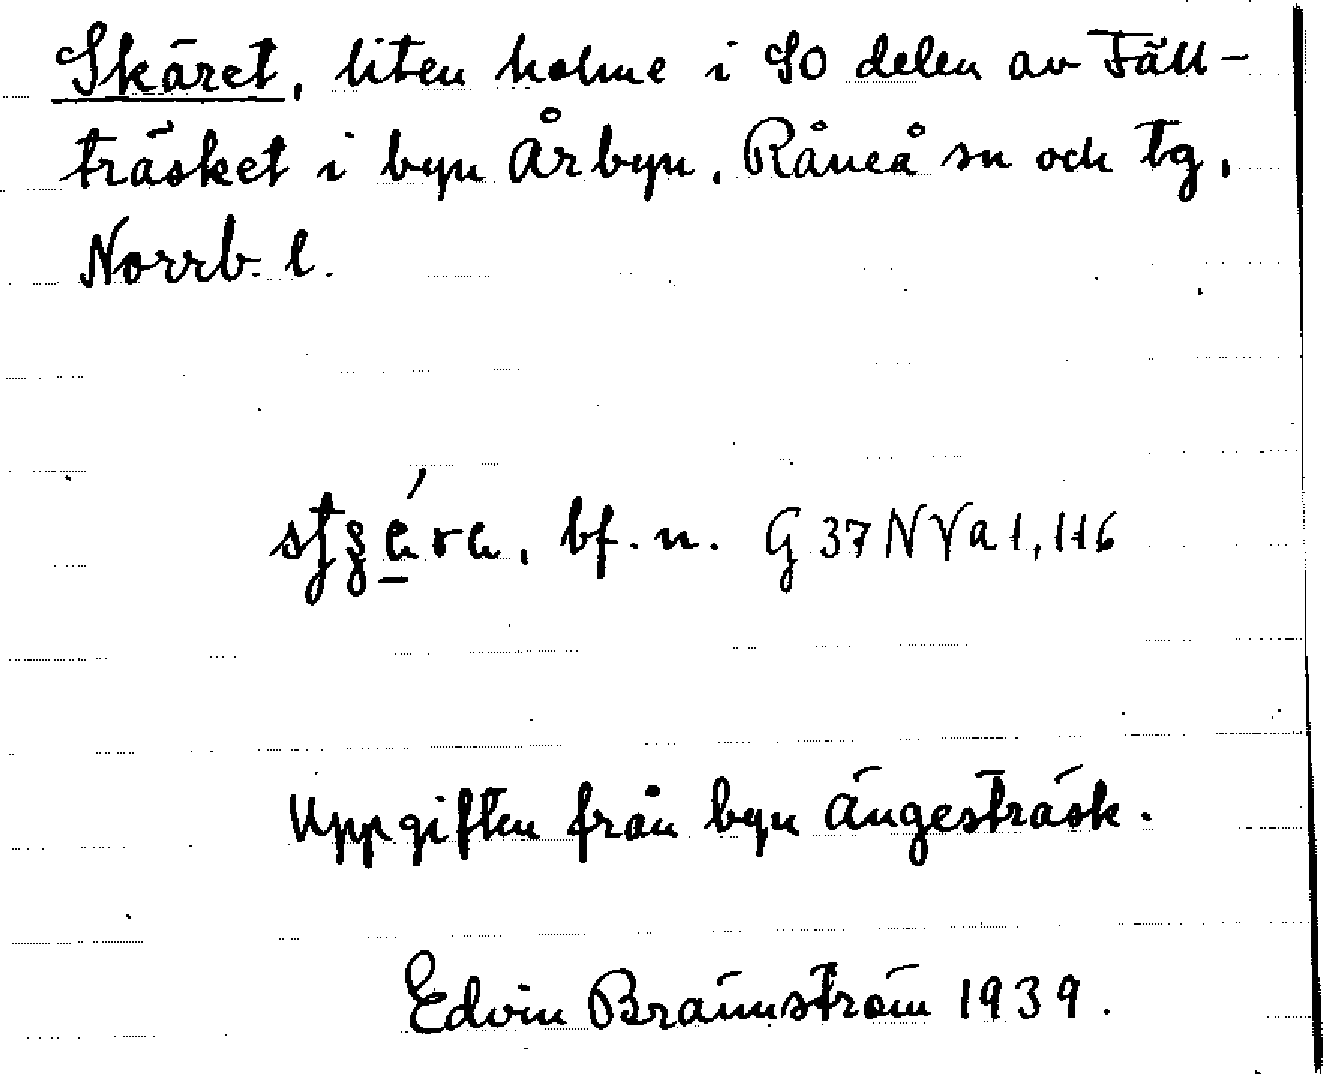 Skäret, liten holme i SO delen av Fäll-
träsket i byn Årbyn, Råneå sn och tg,
Norrb. l.
bf. n. G 37 N V a 1, 116
Uppgiften från byn Ängesträsk.
Edvin Brännström 1939.